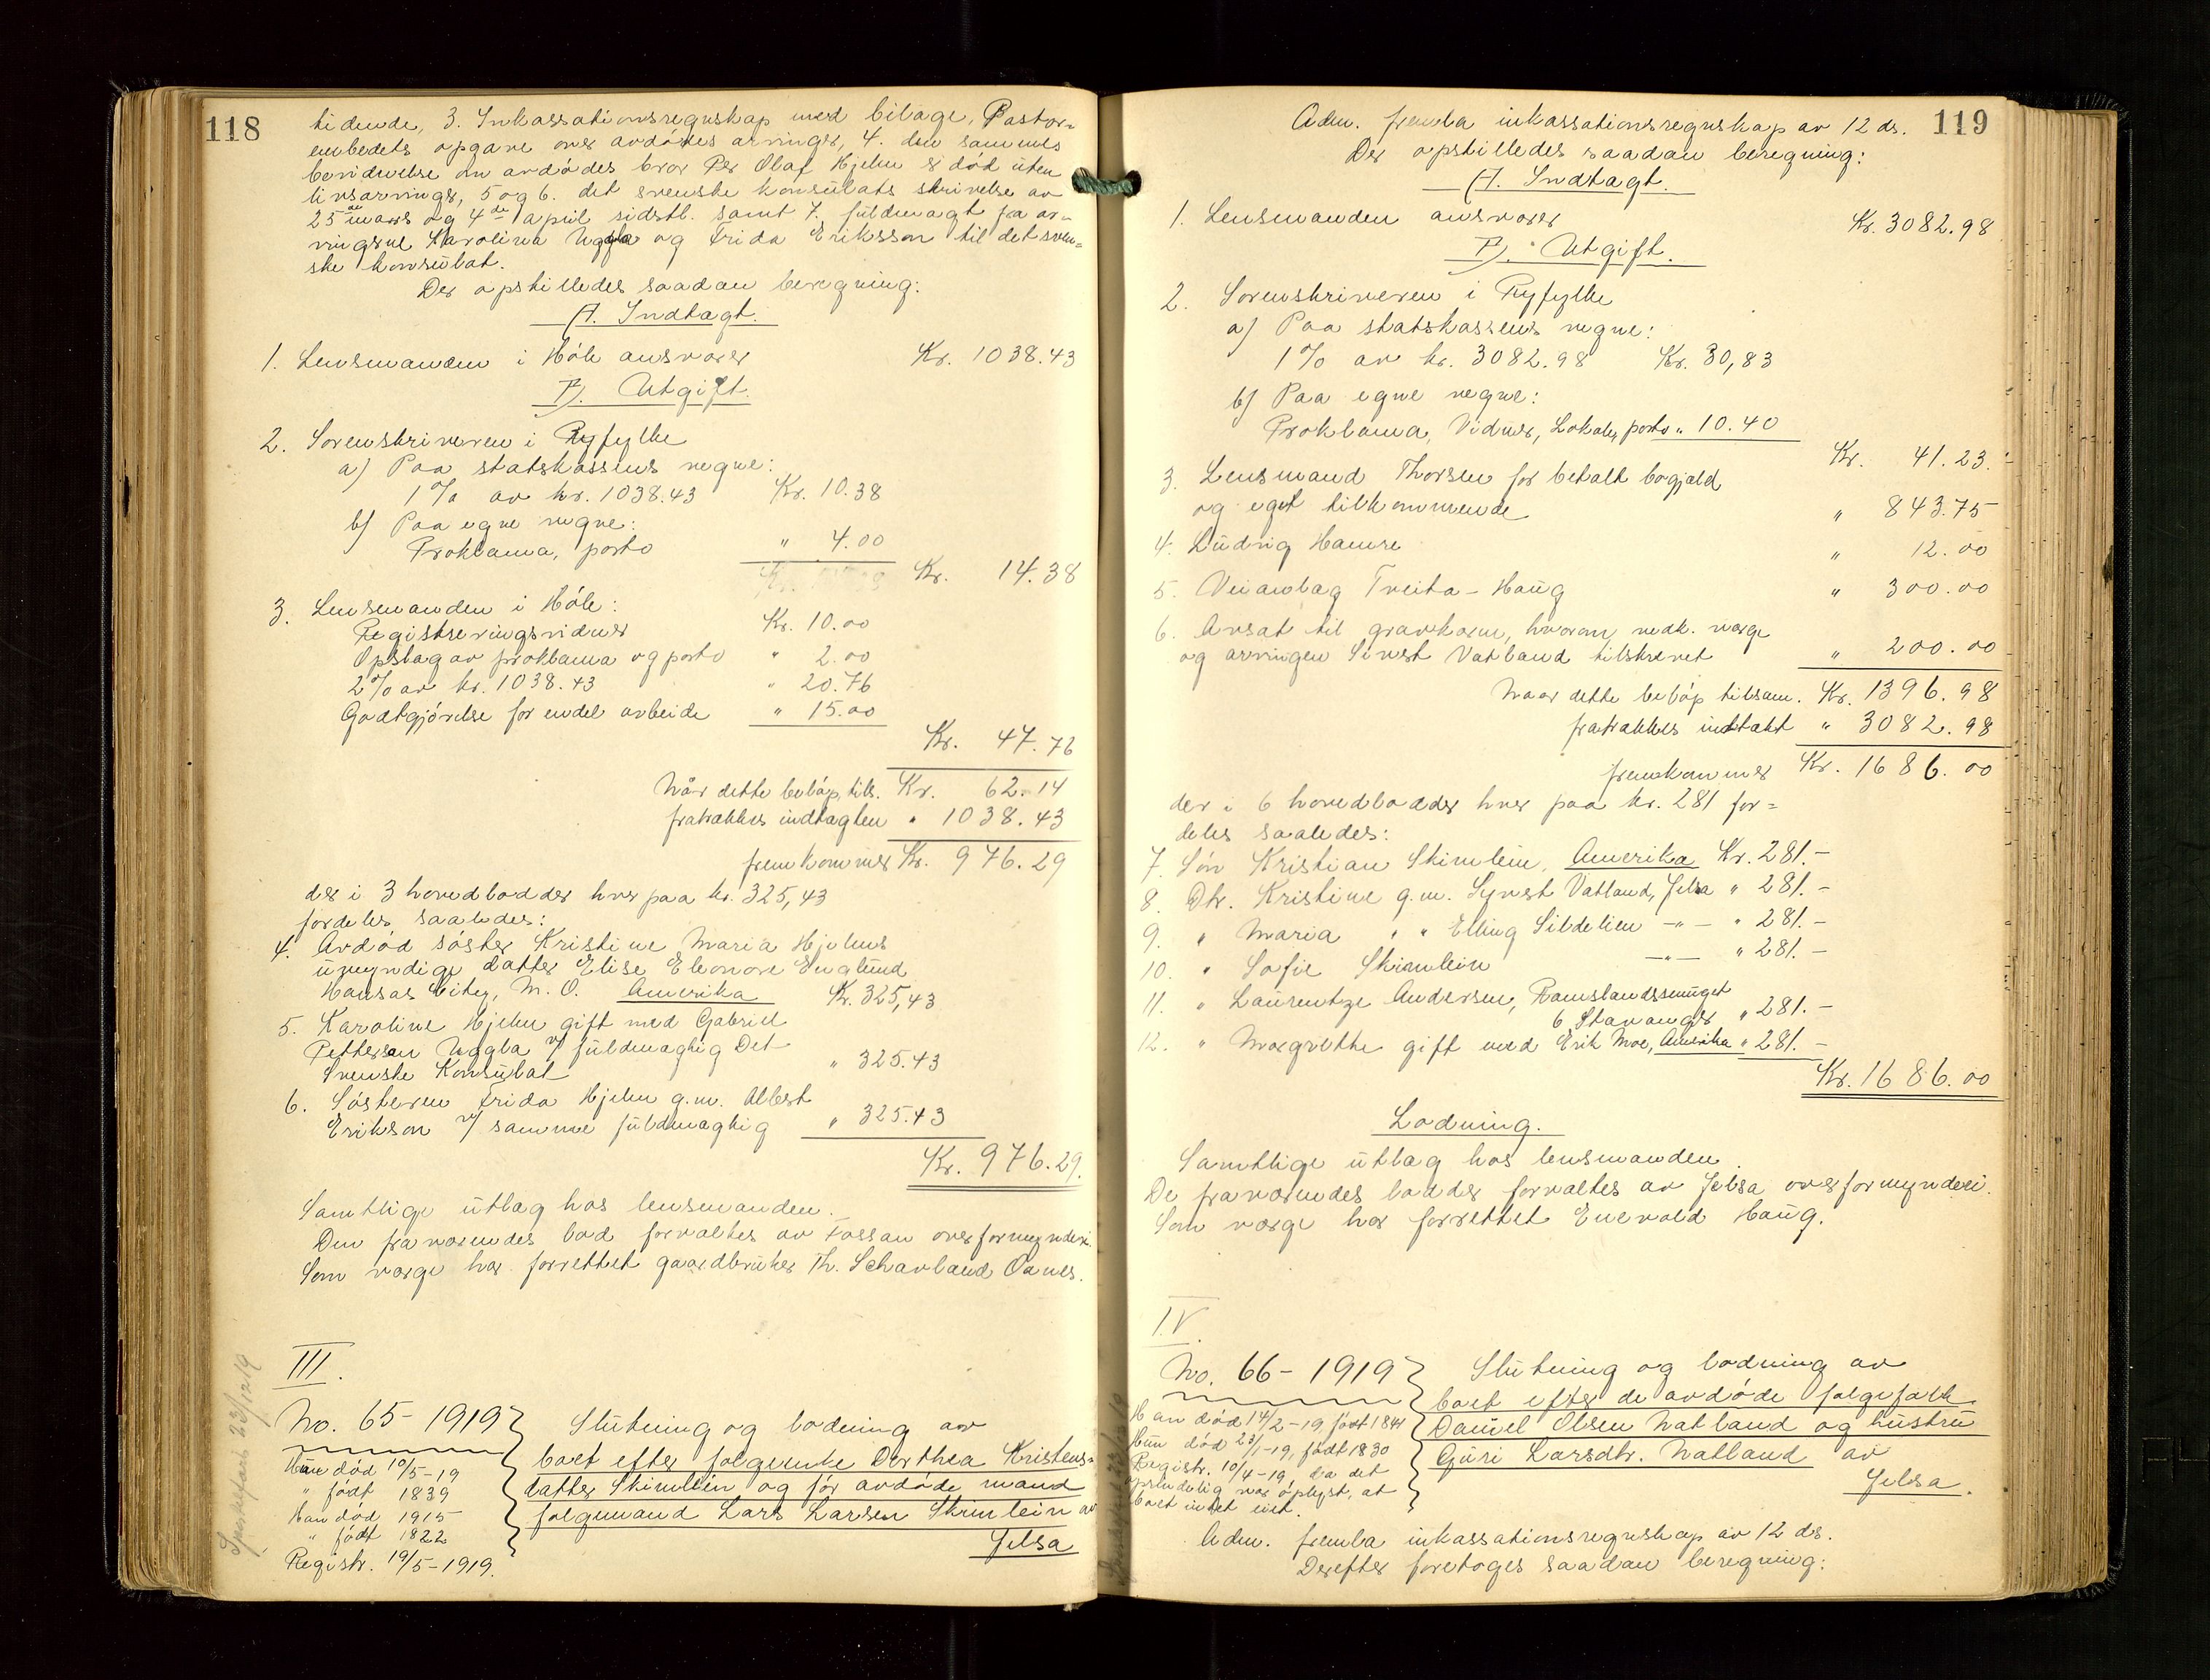 118
tidende, 3. Inkassationsregnskap med bilage, Pastor-
embedets opgave over avdødes arvinger, 4. den sammes
bevidnelse om avdødes bror Per Olaf Hjelm er død uten
livsarvinger, 5 og 6. det svenske konsulats skrivelse av
25de mars og 4de april sidstl. samt 7. fuldmagt fra ar-
vingerne Karolina Uggla og Frida Eriksson til det sven-
ske konsulat.
Der opstilledes saadan beregning:
A. Indtægt.
1. Lensmanden i Høle ansvarer Kr. 1038.43
B. Utgift.
2. Sorenskriveren i Ryfylke
a) Paa statskassens vegne:
1% av kr. 1038.43 Kr. 10.38
b) Paa egne vegne:
Proklama, porto " 4.00
Kr. 14.38
3. Lensmanden i Høle:
Registreringsvidner Kr. 10.00
Opslag av proklama og porto " 2.00
2% av kr. 1038.43 " 20.76
Godtgjørelse for endel arbeide " 15.00
Kr. 47.76
Når dette beløp tils. Kr. 62.14
fratrækkes indtægten " 1038.43
fremkommer Kr. 976.29
der i 3 hovedlodder hver paa kr. 325,43
fordeles saaledes:
4. Avdød søster Kristine Maria Hjelms
umyndige datter Elise Eleonore Englund
Kansas City, M. O. Amerika Kr. 325,43
5. Karoline Hjelm gift med Gabriel
Petterson Uggla v/ fuldmægtig Det
Svenske Konsulat " 325.43
6. Søsteren Frida Hjelm g.m. Albert
Erikson v/ samme fuldmægtig " 325.43
Kr. 976.29.
Samtlige utlæg hos lensmanden.
Den fraværendes lod forvaltes av Fossan overformynderi.
Som værge har forrettet gaardbruker Th. Schavland Oanes.
III.
No. 65-1919
Hun død 10/5-19
" født 1839
Han død 1915
" født 1822
Registr. 19/5-1919.
Slutning og lodning av
boet efter folgeenke Dorthea Kristens-
datter Skimlein og før avdøde mand
folgemand Lars Larsen Skimlein av
Jelsa
119
Adm. fremla inkassationsregnskap av 12 ds.
Der opstilledes saadan beregning:
A. Indtægt.
1. Lensmanden ansvarer Kr. 3082.98
B. Utgift.
2. Sorenskriveren i Ryfylke
a) Paa statskassens vegne:
1% av kr. 3082.98 Kr. 30,83
b) Paa egne vegne:
Proklama, Vidner, Lokale, porto " 10.40
Kr. 41.23.
3. Lensmand Thorsen for betalt bogjæld
og eget tilkommende " 843.75
4. Ludvig Hamre " 12.00
5. Veianlæg Tveita - Haug " 300.00
6. Avsat til gravkorn, hvorom vedk. værge
og arvingen Sivert Vatland tilskrevet " 200.00
Naar dette beløp tilsam. Kr. 1396.98
fratrækkes indtækt " 3082.98
fremkommer Kr. 1686.00
der i 6 hovedlodder hver paa kr. 281 for-
deles saaledes:
7. Søn Kristian Skimlein, Amerika Kr. 281.-
8. Dtr. Kristine g.m. Syvert Vatland, Jelsa " 281.-
9. " Maria " " Elling Sildelien -"- " 281.-
10. " Sofie Skimlein -"- " 281.-
11. " Laurentze Andersen, Ramslandssmuget
6 Stavanger " 281.-
12. " Margrethe gift med Erik Moe, Amerika " 281.-
Kr. 1686.00
Lodning.
Samtlige utlæg hos lensmanden.
De fraværendes lodder forvaltes av Jelsa overformynderi.
Som værge har forrettet Enevald Haug.
IV.
No. 66-1919
Han død 14/2-19 født 1841
Hun død 23/1-19, født 1830
Registr. 10/4-19, da det
oprindelig var oplyst, at
boet intet eiet.
Slutning og lodning av
boet efter de avdøde folgefolk
Daniel Olsen Natland og hustru
Guri Larsdtr. Natland av
Jelsa.
Adm. fremla inkassationsregnskap av 12 ds.
Derefter foretoges saadan beregning: